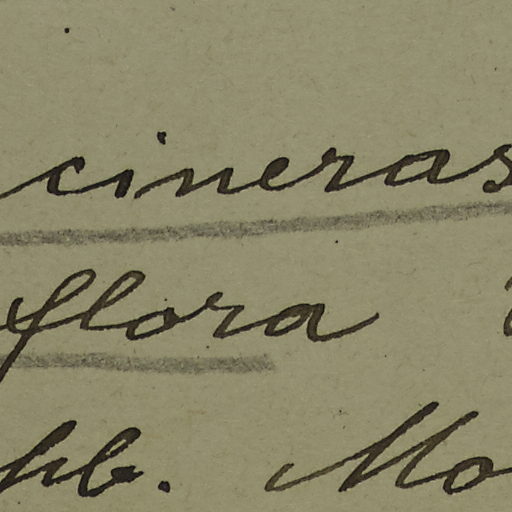 cineras
flora
hb. Mo